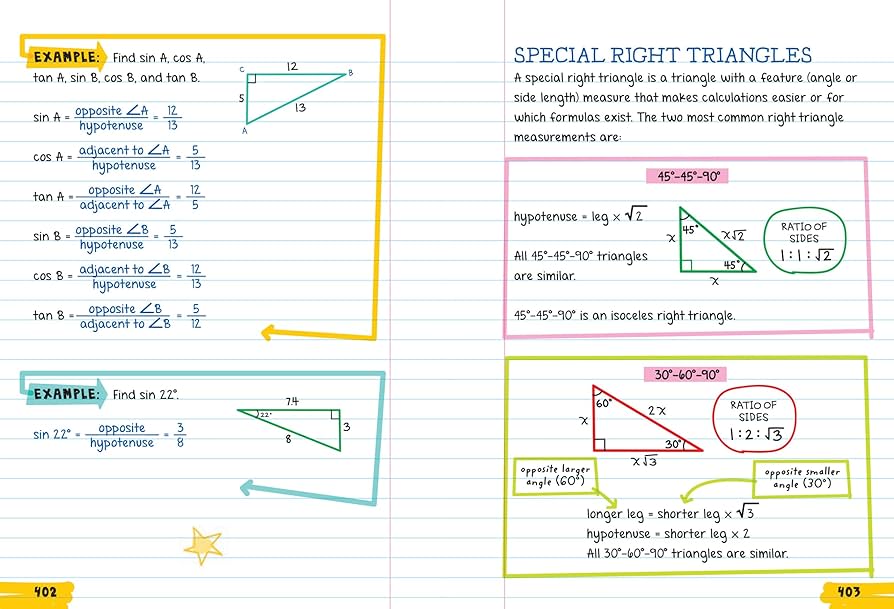 EXAMPLE: Find sin A, cos A,
tan A, sin B, cos B, and tan B.
C 12 B
5
13
A
sin A = opposite ∠A / hypotenuse = 12/13
cos A = adjacent to ∠A / hypotenuse = 5/13
tan A = opposite ∠A / adjacent to ∠A = 12/5
sin B = opposite ∠B / hypotenuse = 5/13
cos B = adjacent to ∠B / hypotenuse = 12/13
tan B = opposite ∠B / adjacent to ∠B = 5/12
EXAMPLE: Find sin 22°.
7.4
22°
3
8
sin 22° = opposite / hypotenuse = 3/8
402
SPECIAL RIGHT TRIANGLES
A special right triangle is a triangle with a feature (angle or
side length) measure that makes calculations easier or for
which formulas exist. The two most common right triangle
measurements are:
45°-45°-90°
hypotenuse = leg × √2
All 45°-45°-90° triangles
are similar.
45°
x
x√2
45°
x
RATIO OF
SIDES
1:1:√2
45°-45°-90° is an isoceles right triangle.
30°-60°-90°
60°
x
2x
30°
x√3
RATIO OF
SIDES
1:2:√3
opposite larger
angle (60°)
opposite smaller
angle (30°)
longer leg = shorter leg × √3
hypotenuse = shorter leg × 2
All 30°-60°-90° triangles are similar.
403